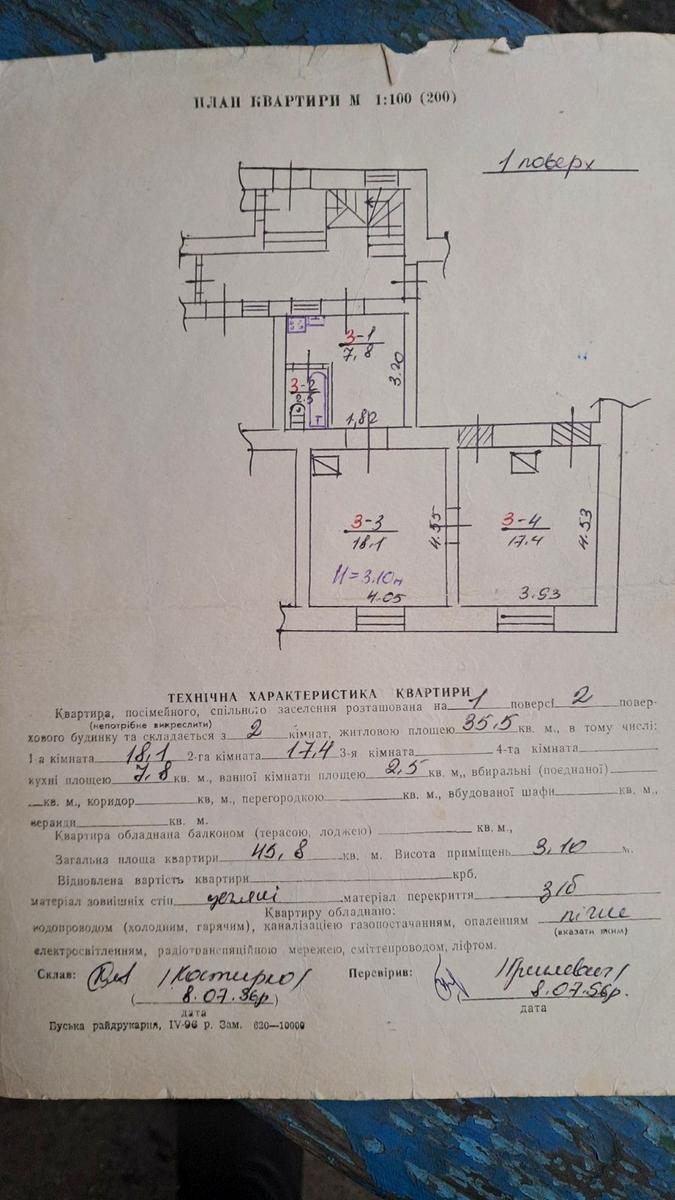 ПЛАН КВАРТИРИ М 1:100 (200)
1 поверх
3-1
7,8
3.20
3-2
2.5
1,82
3-3
18.1
4.55
H=3.10м
4.05
3-4
17.4
4.53
3.93
ТЕХНІЧНА ХАРАКТЕРИСТИКА КВАРТИРИ
Квартира, посімейного, спільного заселення розташована на 1 поверсі 2 повер-
(непотрібне викреслити)
хового будинку та складається з 2 кімнат, житловою площею 35,5 кв. м., в тому числі:
1-а кімната 18,1 2-га кімната 17,4 3-я кімната 4-та кімната
кухні площею 7,8 кв. м., ванної кімнати площею 2,5 кв. м., вбиральні (поєднаної)
кв. м., коридор кв, м., перегородкою кв. м., вбудованої шафи кв. м.,
веранди кв. м.
Квартира обладнана балконом (терасою, лоджею) кв. м.,
Загальна площа квартири 45,8 кв. м. Висота приміщень 3,10 м.
Відновлена вартість квартири крб.
матеріал зовнішніх стін цегляні матеріал перекриття з/б
Квартиру обладнано:
водопроводом (холодним, гарячим), каналізацією газопостачанням, опаленням пічне
(вказати яким)
електросвітленням, радіотрансляційною мережею, сміттєпроводом, ліфтом.
Склав: /Костирко/ Перевірив:
(8.07.96р.) 8.07.96р.
дата дата
Буська райдрукарня, IV-96 р. Зам. 620—10000